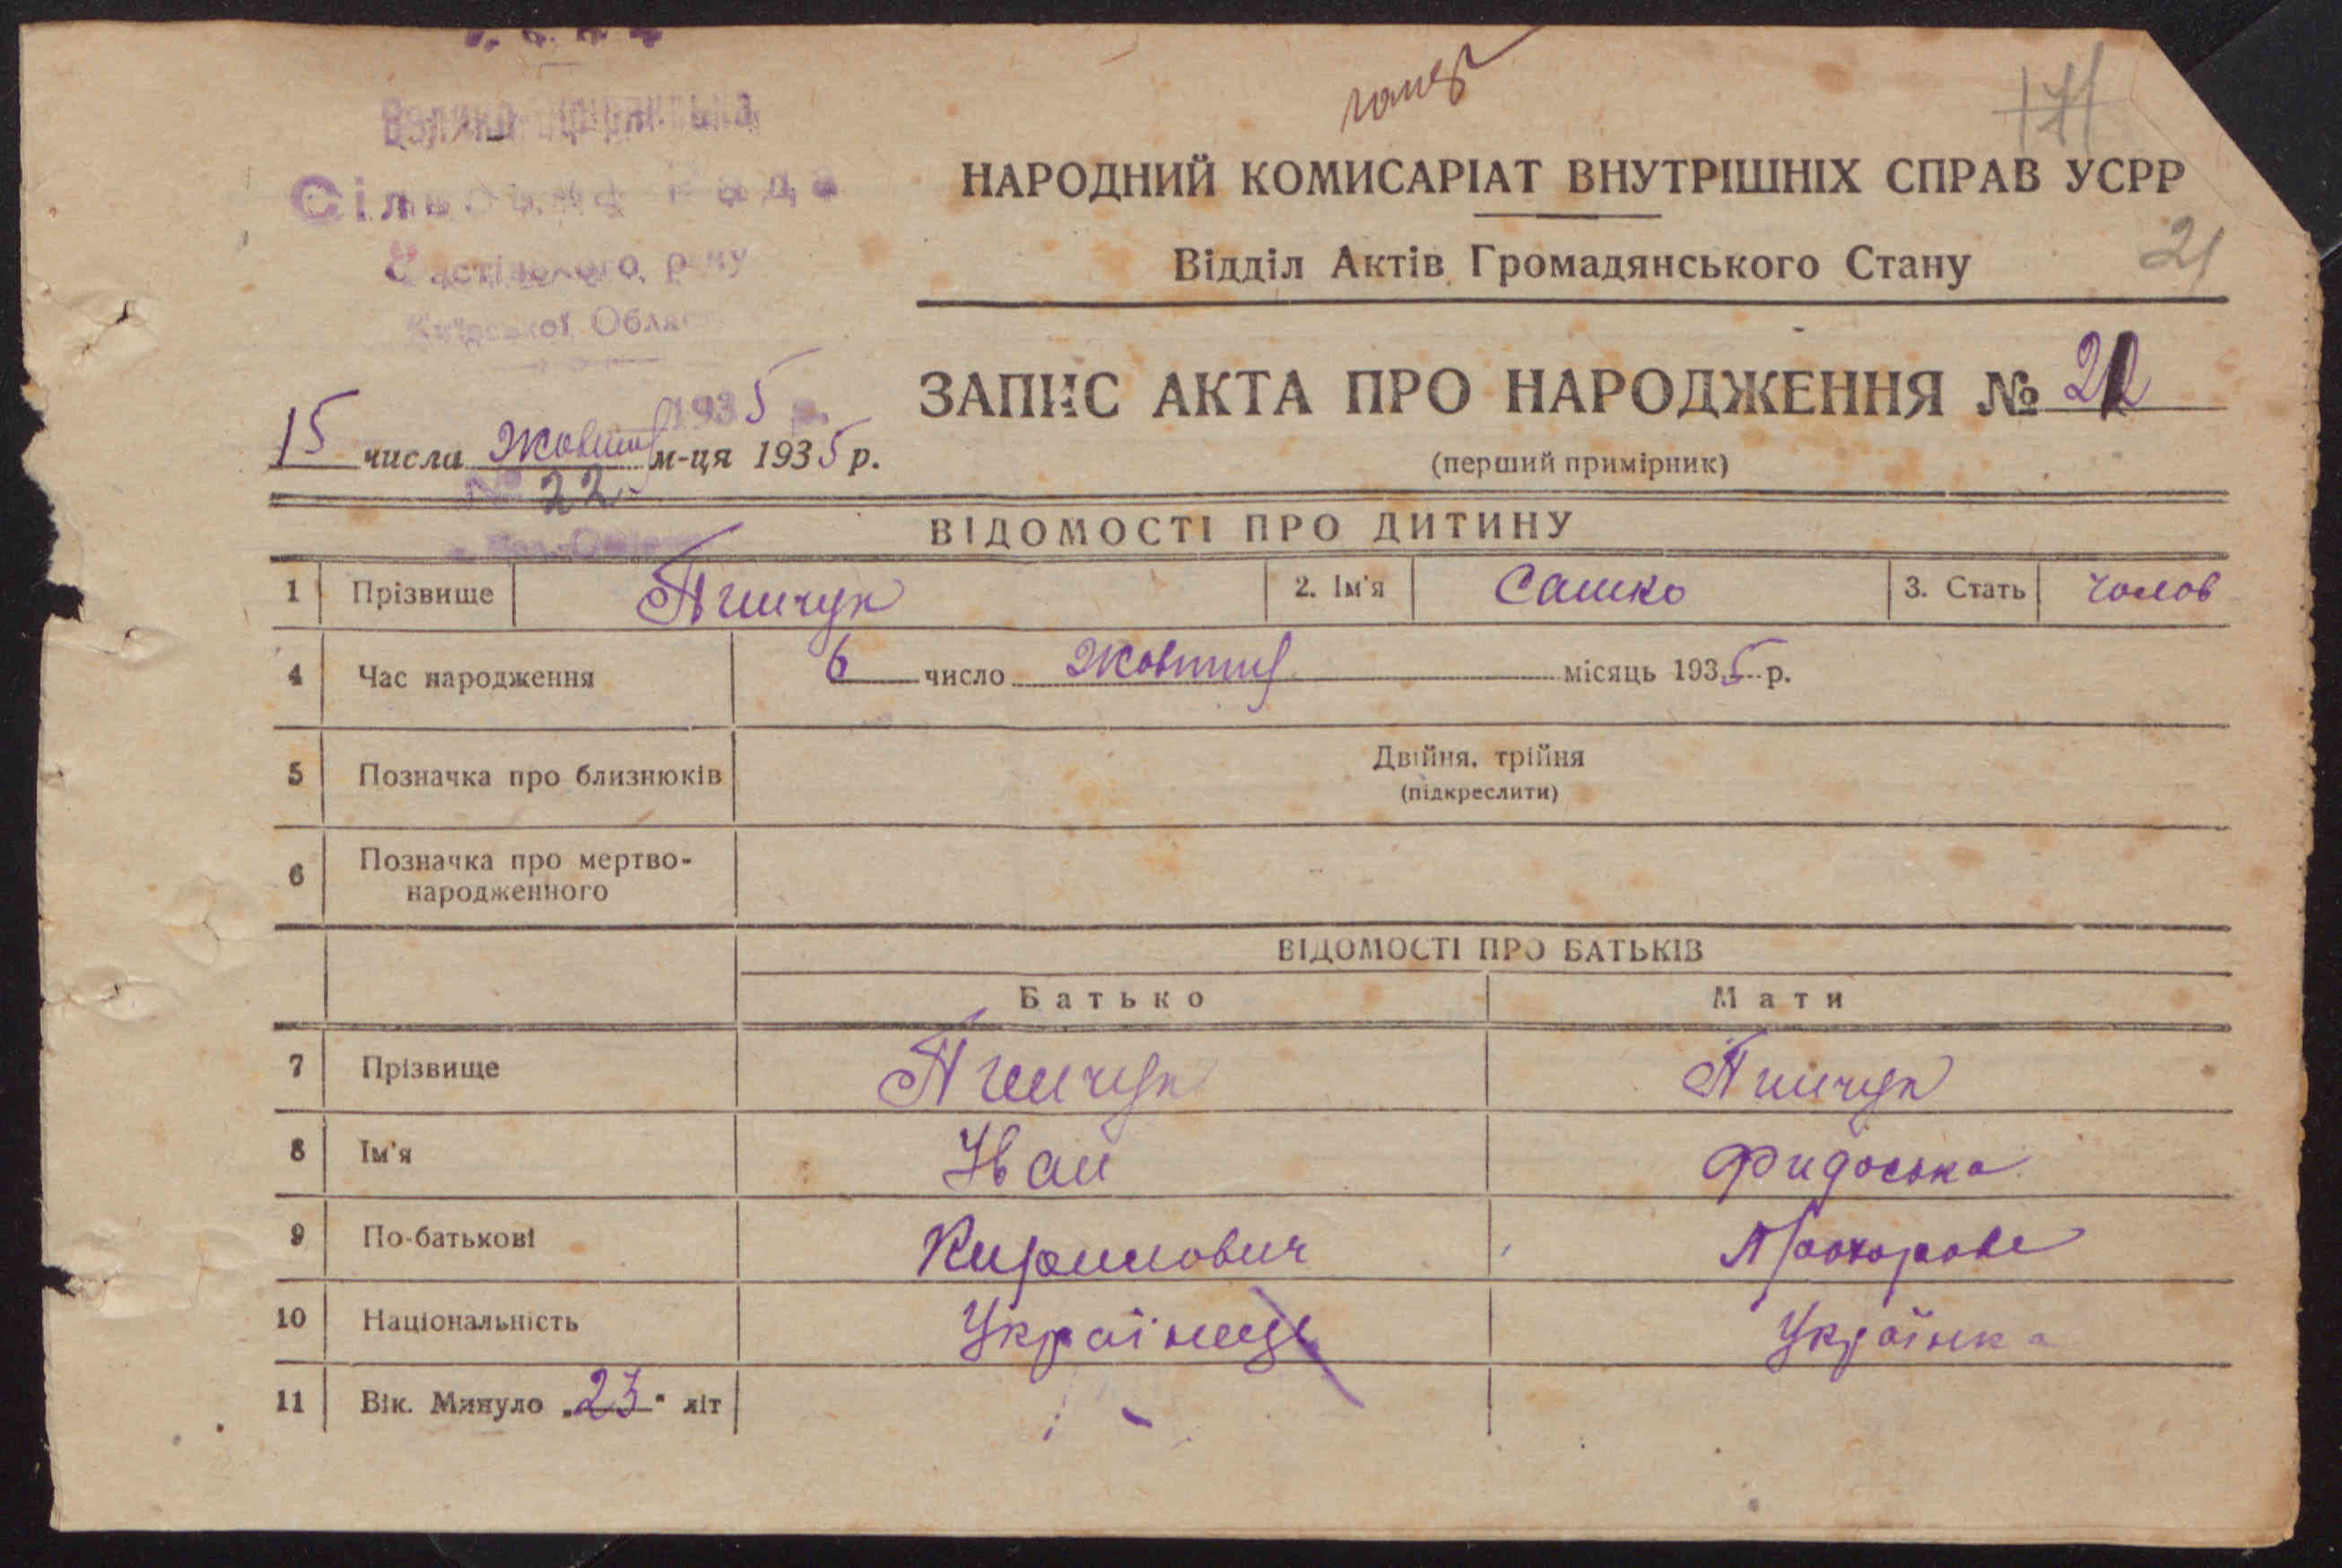 Сільська рада
Фастівського р-ну
Київської Облас
171
НАРОДНИЙ КОМИСАРІАТ ВНУТРІШНІХ СПРАВ УСРР
Відділ Актів Громадянського Стану
21
ЗАПИС АКТА ПРО НАРОДЖЕННЯ №
(перший примірник)
1935 р.
15 числа Жовтня м-ця 1935 р.
№ 22
ВІДОМОСТІ ПРО ДИТИНУ
1 Прізвище 2. Ім'я Сашко 3. Стать чолов
4 Час народження 6 число Жовтня місяць 1935 р.
5 Позначка про близнюків Двійня, трійня
(підкреслити)
6 Позначка про мертво-
народженного
ВІДОМОСТІ ПРО БАТЬКІВ
Батько Мати
7 Прізвище
8 Ім'я Іван Фидоська
9 По-батькові Кирилович Прохорове
10 Національність Українець Українка
11 Вік. Минуло „23" літ